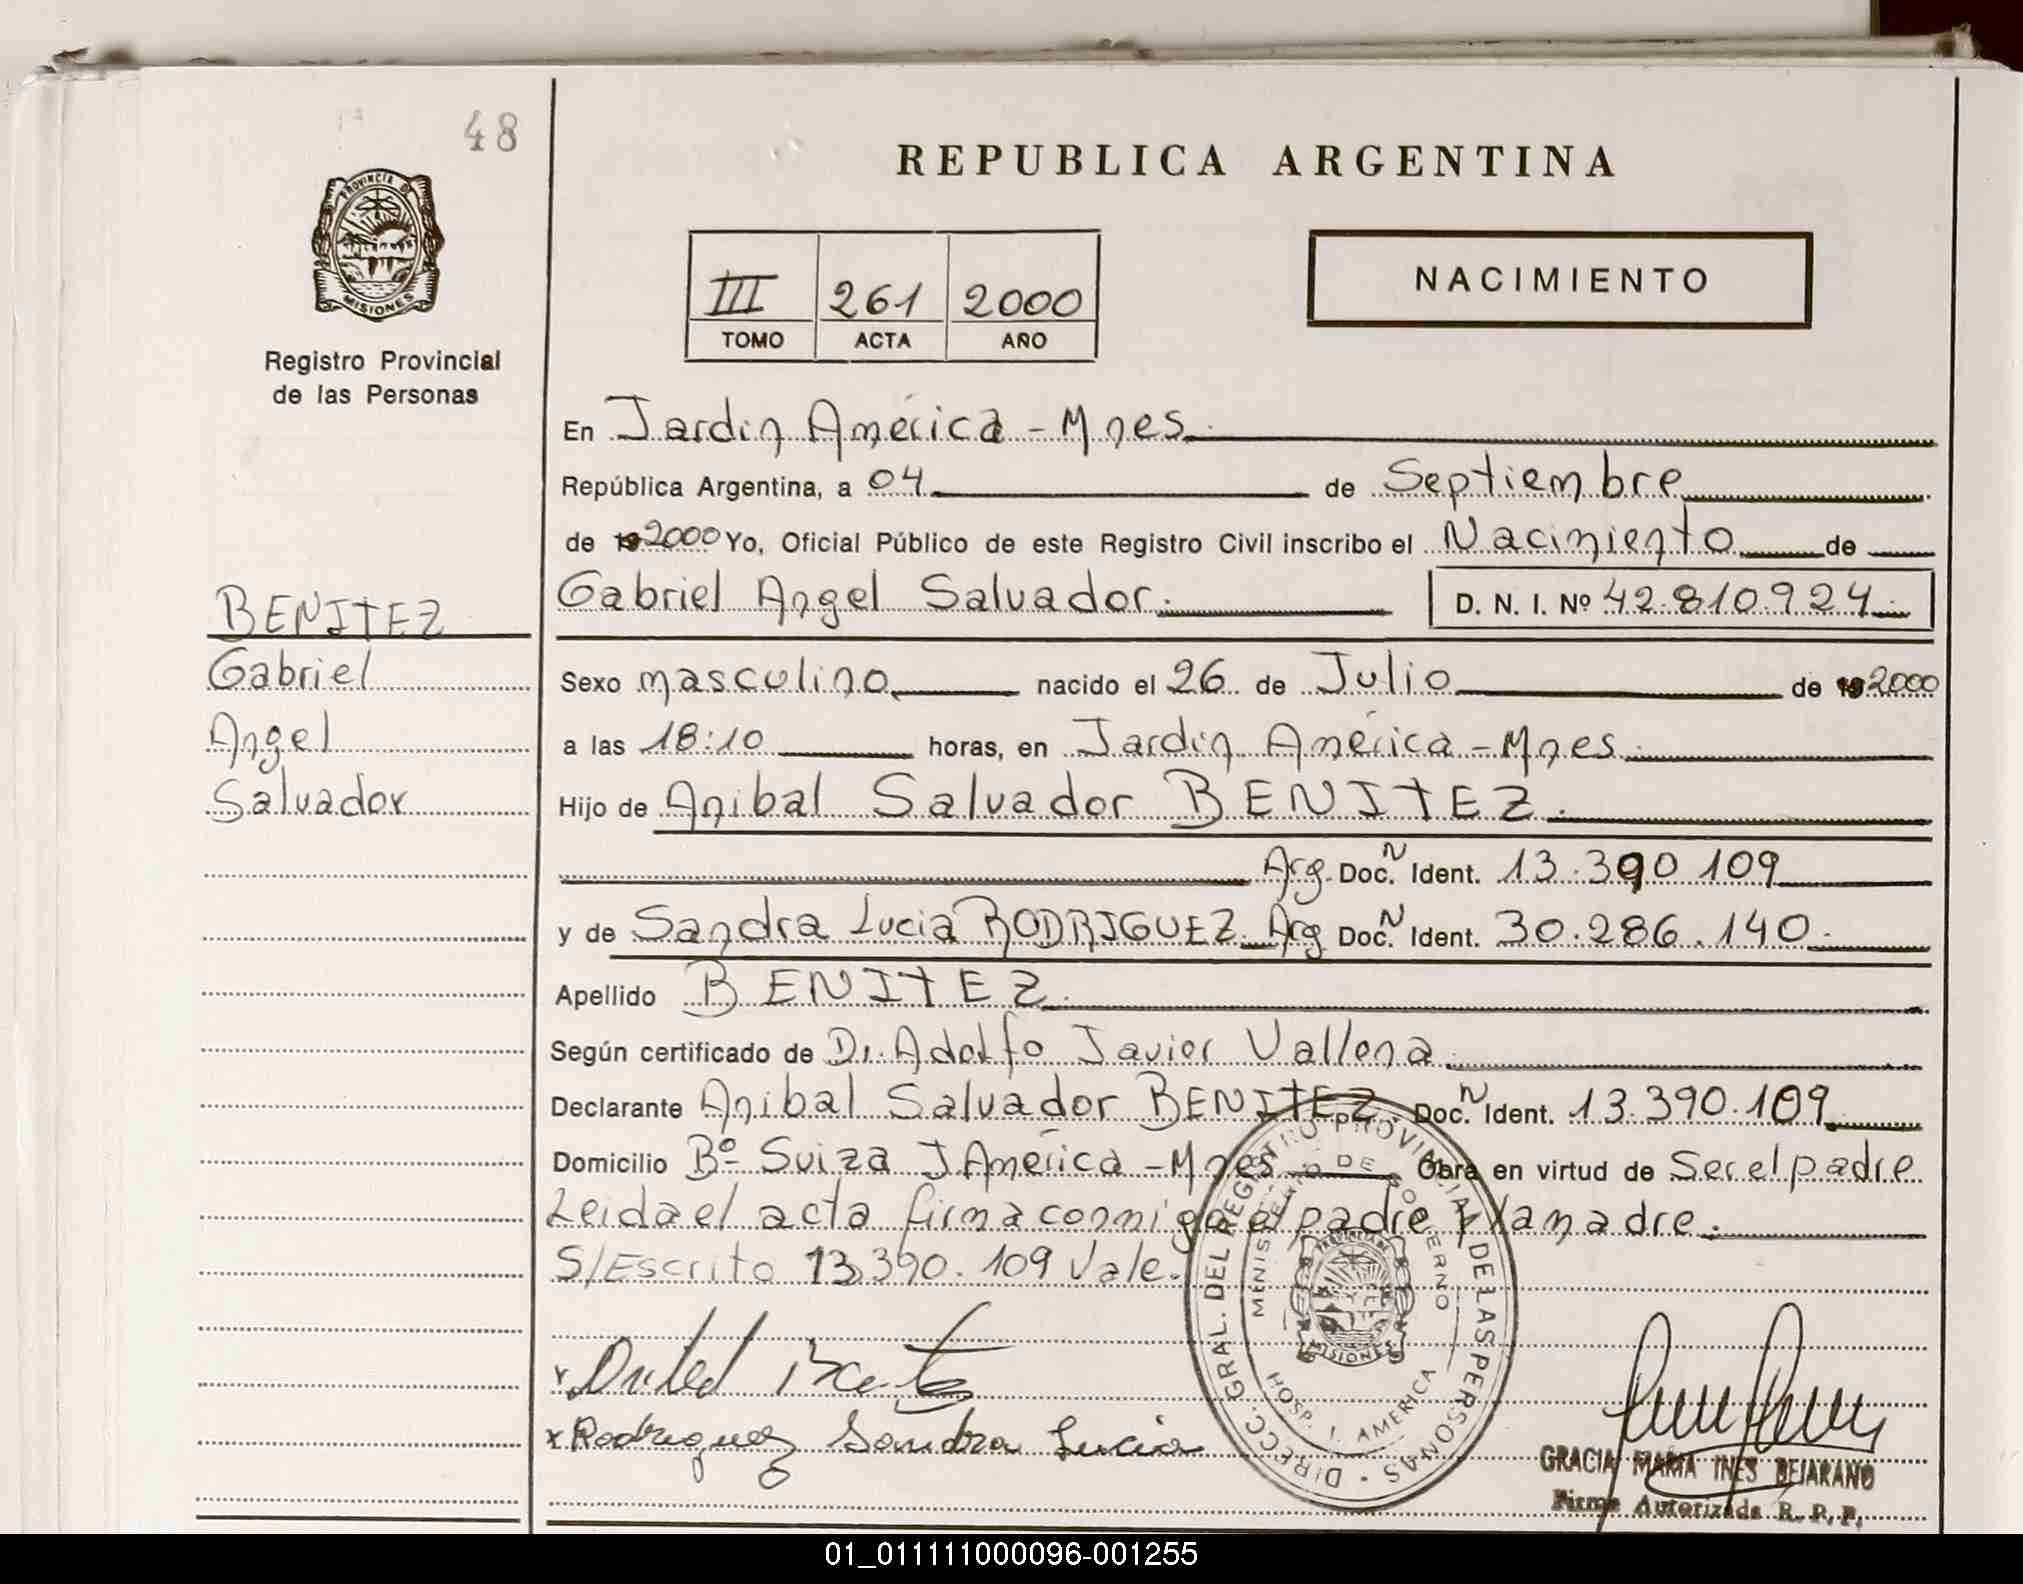 48
PROVINCIA DE
MISIONES
Registro Provincial
de las Personas
REPUBLICA ARGENTINA
III 261 2000
TOMO ACTA AÑO
NACIMIENTO
En Jardin América - Mnes.
República Argentina, a 04 de Septiembre
de 19 2000 Yo, Oficial Público de este Registro Civil inscribo el Nacimiento de
Gabriel Angel Salvador. D. N. I. Nº 42.810.924
BENITEZ
Gabriel
Angel
Salvador
Sexo masculino nacido el 26 de Julio de 19 2000
a las 18:10 horas, en Jardin América - Mnes.
Hijo de Anibal Salvador BENITEZ.
Arg. Doc. N Ident. 13.390 109
y de Sandra Lucia RODRIGUEZ Arg Doc. N Ident. 30.286.140.
Apellido BENITEZ.
Según certificado de Dr. Adolfo Javier Vallena
Declarante Anibal Salvador BENITEZ Doc. N Ident. 13.390.109
Domicilio Bº Suiza J América - Mnes Obra en virtud de Ser el padre
Leida el acta firma conmigo el padre y la madre.
S/Escrito 13.390.109 Vale.
DIRECC. GRAL. DEL REGISTRO PROVINCIAL DE LAS PERSONAS
MINISTERIO DE GOBIERNO
PROVINCIA DE
MISIONES
HOSP. J. AMERICA
x Rodriguez Sandra Lucia
GRACIA MARIA INES BEJARANO
Firma Autorizada R. P. P.
01_011111000096-001255